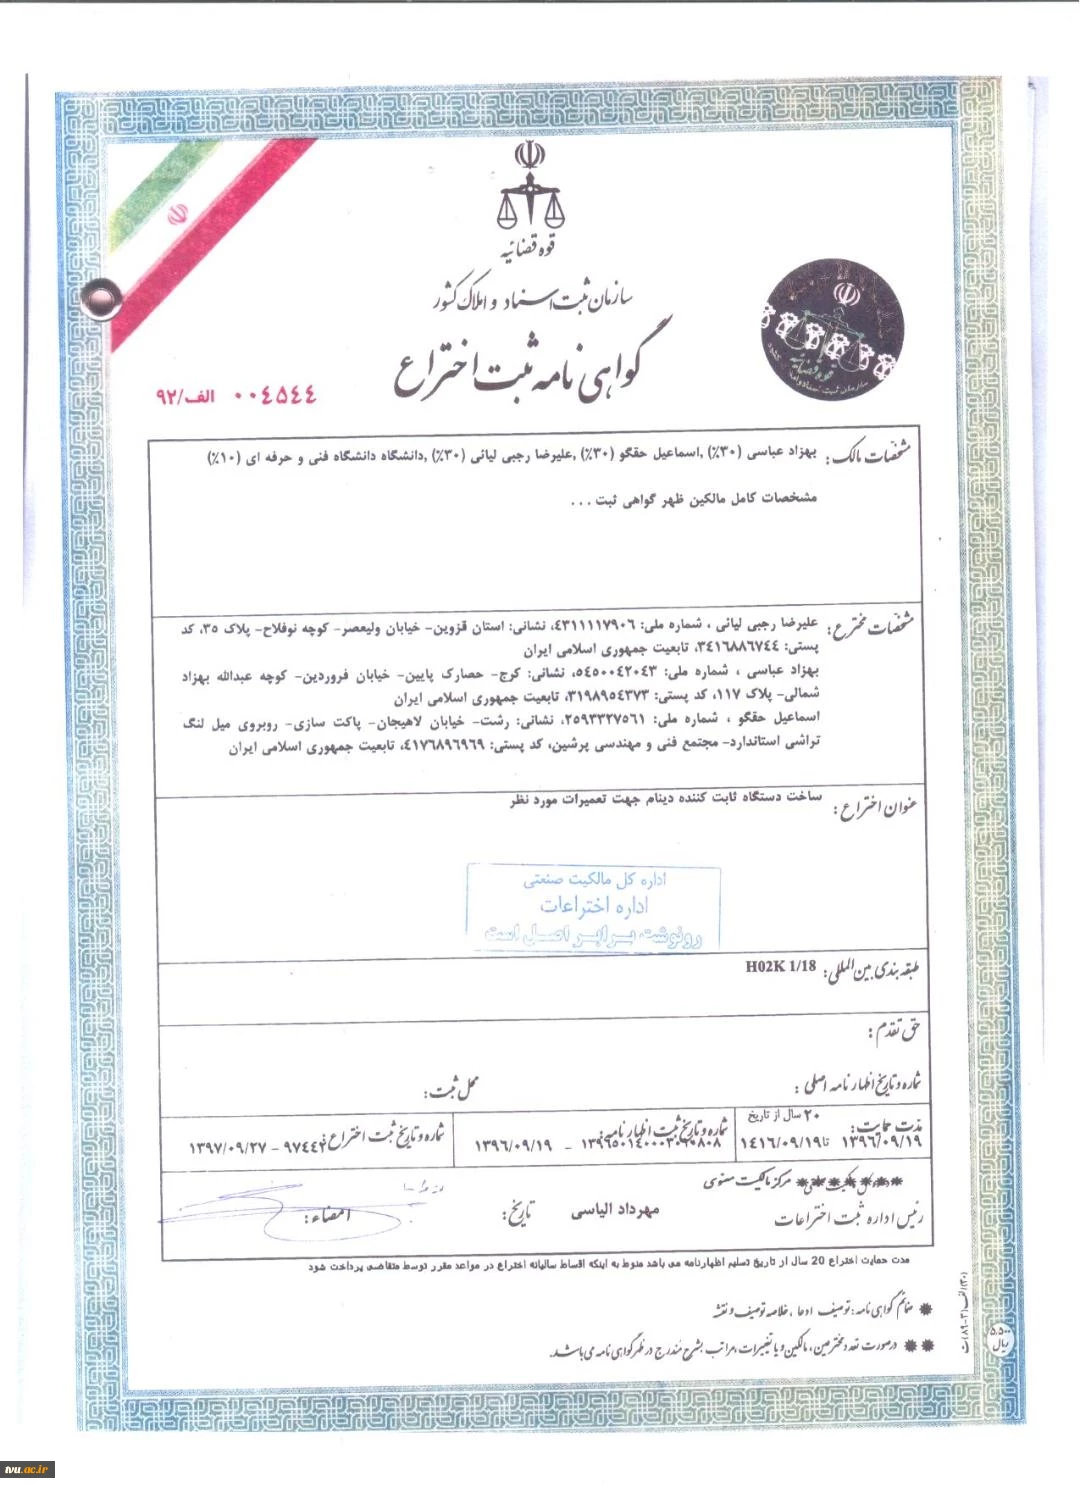 قوه قضائیه
سازمان ثبت اسناد و املاک کشور
گواهی نامه ثبت اختراع
۰۰٤٥٤٤ الف/۹۲
قوه قضائیه
مشخصات مالک: بهزاد عباسی (۳۰٪) ,اسماعیل حقگو (۳۰٪) ,علیرضا رجبی لیائی (۳۰٪) ,دانشگاه دانشگاه فنی و حرفه ای (۱۰٪)
مشخصات کامل مالکین ظهر گواهی ثبت ...
مشخصات مخترع: علیرضا رجبی لیائی ، شماره ملی: ٤۳۱۱۱۱۷۹۰٦، نشانی: استان قزوین- خیابان ولیعصر- کوچه نوفلاح- پلاک ۳٥، کد
پستی: ۳٤۱٦۸۸٦۷٤٤، تابعیت جمهوری اسلامی ایران
بهزاد عباسی ، شماره ملی: ٥٤٥۰۰٤۲۰٤۳، نشانی: کرج- حصارک پایین- خیابان فروردین- کوچه عبدالله بهزاد
شمالی- پلاک ۱۱۷، کد پستی: ۳۱۹۸۹٥٤۳۷۳، تابعیت جمهوری اسلامی ایران
اسماعیل حقگو ، شماره ملی: ۲٥۹۳۳۲۷٥٦۱، نشانی: رشت- خیابان لاهیجان- پاکت سازی- روبروی میل لنگ
تراشی استاندارد- مجتمع فنی و مهندسی پرشین، کد پستی: ٤۱۷٦۸۹٦۹٦۹، تابعیت جمهوری اسلامی ایران
عنوان اختراع: ساخت دستگاه ثابت کننده دینام جهت تعمیرات مورد نظر
اداره کل مالکیت صنعتی
اداره اختراعات
رونوشت برابر اصل است
طبقه بندی بین المللی: H02K 1/18
حق تقدم:
شماره و تاریخ اظهارنامه اصلی: محل ثبت:
مدت حمایت: ۲۰ سال از تاریخ
۱۳۹٦/۰۹/۱۹ تا ۱٤۱٦/۰۹/۱۹
شماره و تاریخ ثبت اظهارنامه:
- ۱۳۹٦/۰۹/۱۹
شماره و تاریخ ثبت اختراع: - ۱۳۹۷/۰۹/۲۷
مرکز مالکیت معنوی
رئیس اداره ثبت اختراعات مهرداد الیاسی تاریخ: امضاء:
مدت حمایت اختراع 20 سال از تاریخ تسلیم اظهارنامه می باشد منوط به اینکه اقساط سالیانه اختراع در مواعد مقرر توسط متقاضی پرداخت شود
ضمائم گواهی نامه: توصیف ادعا، خلاصه توصیف و نقشه
درصورت تعدد مخترعین، مالکین و یا تغییرات، مراتب بشرح مندرج در ظهر گواهی نامه می باشد.
۵۵۰۰
ریال
tvu.ac.ir